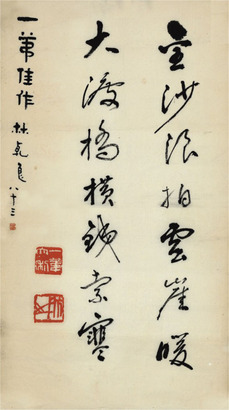 金沙浪拍雲崖暖
大渡橋橫鐵索寒
一第佳作 林乾良 八十三